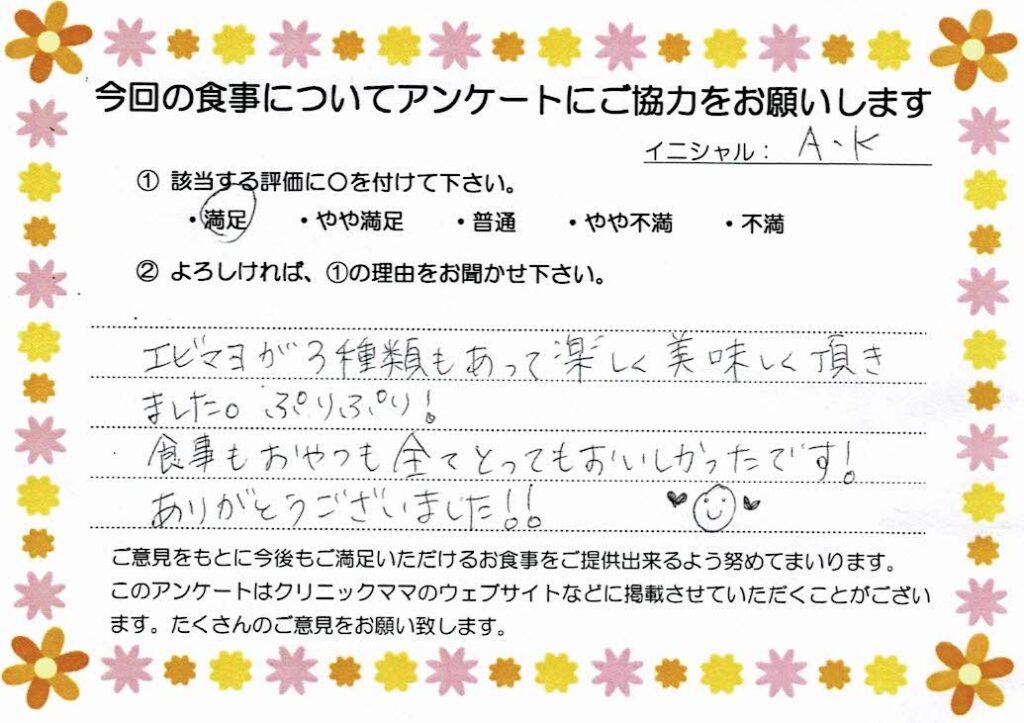 今回の食事についてアンケートにご協力をお願いします
イニシャル： A、K
① 該当する評価に〇を付けて下さい。
・満足 ・やや満足 ・普通 ・やや不満 ・不満
② よろしければ、①の理由をお聞かせ下さい。
エビマヨが3種類もあって楽しく美味しく頂き
ました。ぷりぷり!
食事もおやつも全てとってもおいしかったです!
ありがとうございました!!
ご意見をもとに今後もご満足いただけるお食事をご提供出来るよう努めてまいります。
このアンケートはクリニックママのウェブサイトなどに掲載させていただくことがござい
ます。たくさんのご意見をお願い致します。